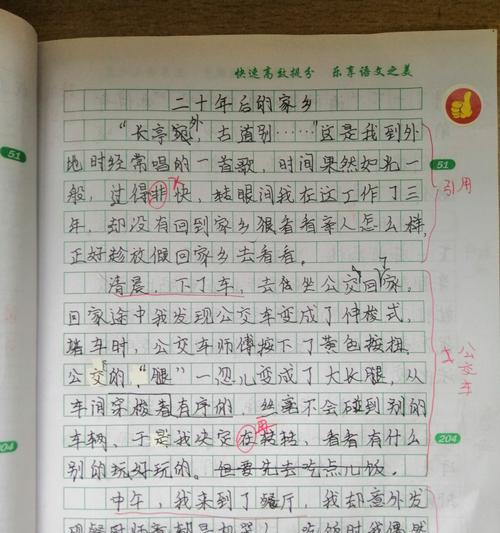 快速高效提分 乐享语文之美
二十年后的家乡
外
“长亭，古道别……”这是我到外
51
51
地时经常唱的一首歌，时间果然如光一
般，过得非快，转眼间我在这工作了三
引用
年，却没有回到家乡狠看看亲人怎么样，
正好趁放假回家乡去看看。
清晨，下了车，去坐公交回家。
回家途中我发现公交车变成了伸梭式，
堵车时，公交车师傅按下了黄色按扭，
公交车
公交的“腿”一忽儿变成了大长腿，从
车间穿梭着有序的，丝毫不会碰到别的
再
车辆，于是我决定在转转，看看有什么
204
204
别的玩好玩的。但要先去吃点儿饭。
中午，我来到了餐厅，我却意外发